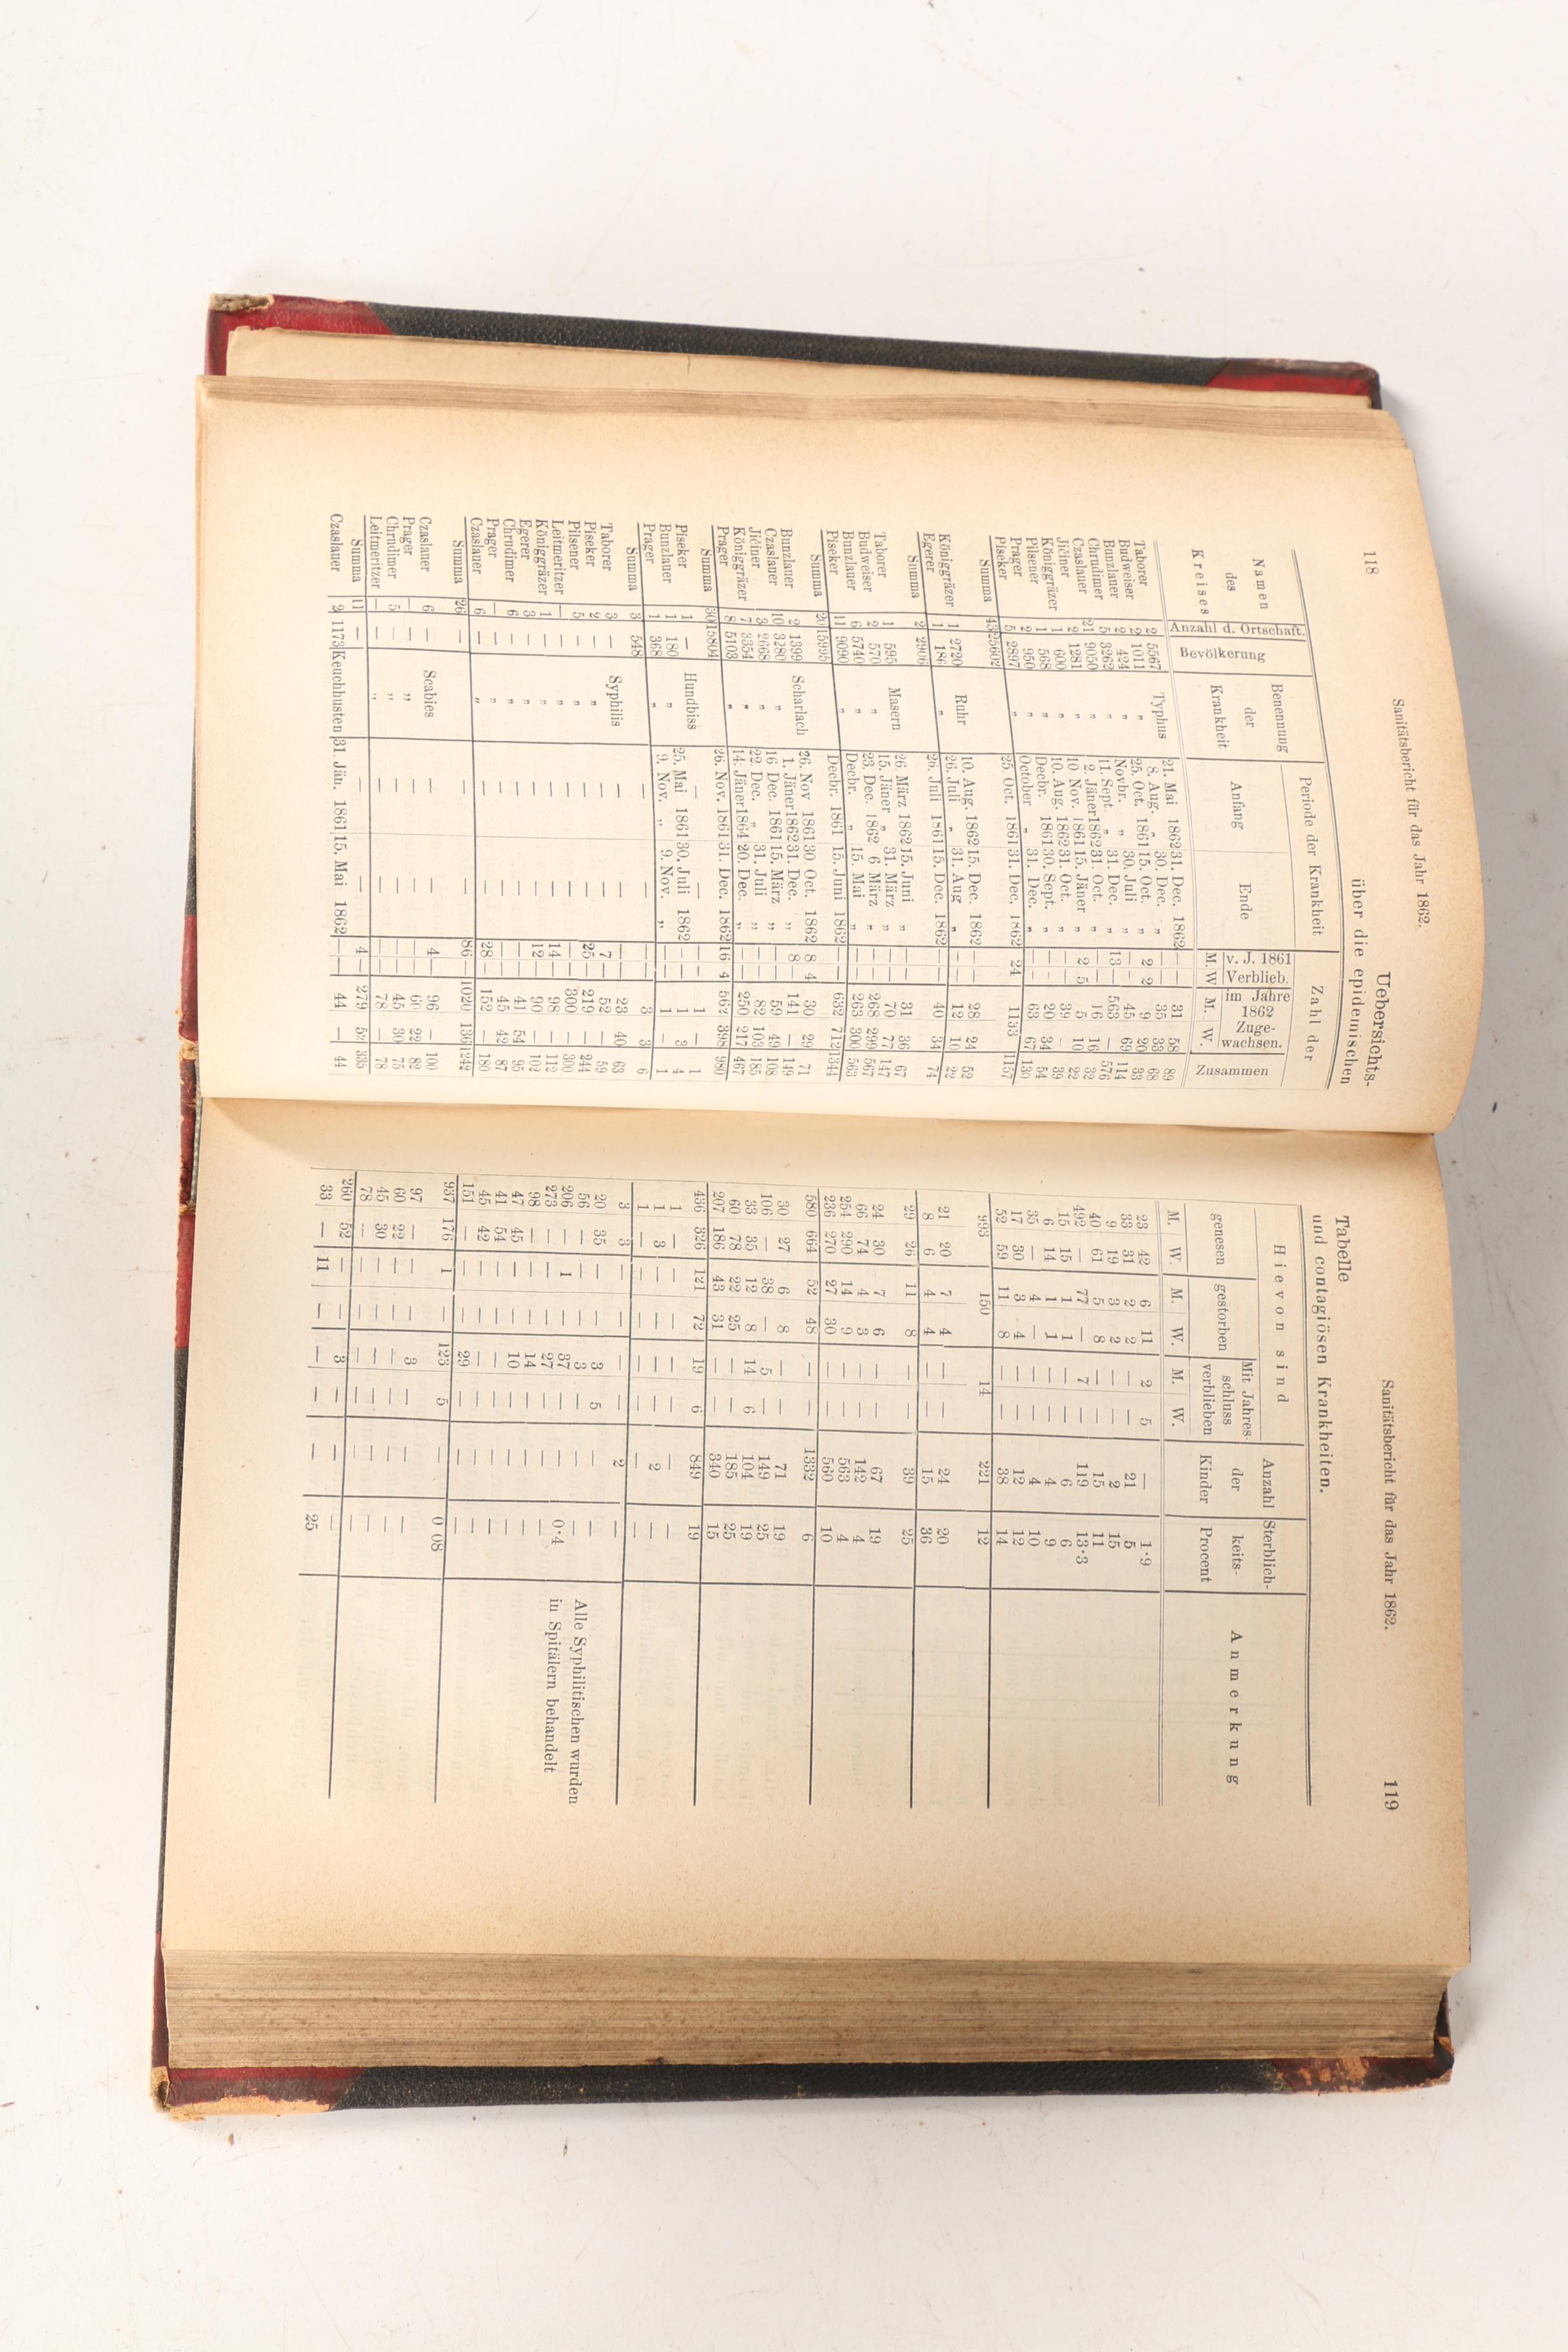 118
Sanitätsbericht für das Jahr 1862.
Uebersichts-
über die epidemischen
Namen des Kreises | Anzahl d. Ortschaft. | Bevölkerung | Benennung der Krankheit | Periode der Krankheit | Zahl der
Anfang | Ende | v. J. 1861 Verblieb. | im Jahre 1862 Zuge-wachsen. | Zusammen
M. | W | M. | W.
Taborer 2 5567 Typhus 21. Mai 1862 31. Dec. 1862 — — 31 58 89
Budweiser 2 1011 „ 8. Aug. „ 30. Dec. „ — — 35 33 68
Bunzlauer 2 424 „ 25. Oct. 1861 15. Oct. „ 2 2 9 20 33
Chrudimer 5 3262 „ Novbr. „ 30. Juli „ — — 45 69 114
Czaslauer 21 9050 „ 11. Sept „ 31. Dec. „ 13 — 563 — 576
Jičiner 2 1281 „ 2. Jäner 1862 31. Oct. „ — — 16 16 32
Königgräzer 1 600 „ 10 Nov. 1861 15. Jäner „ 2 5 5 10 22
Pilsener 1 568 „ 10. Aug. 1862 31. Oct. „ — — 39 — 39
Prager 2 950 „ Decbr. 1861 30. Sept. „ — — 20 34 54
Piseker 5 2897 „ October „ 31. Dec. „ — — 63 67 130
Summa 43 25602 25. Oct. 1861 31. Dec. 1862 24 1133 1157
Königgräzer 1 2720 Ruhr 10. Aug. 1862 15. Dec. 1862 — — 28 24 52
Egerer 1 186 „ 26. Juli „ 31. Aug „ — — 12 10 22
Summa 2 2906 26. Juli 1861 15. Dec. 1862 — — 40 34 74
Taborer 1 595 Masern 26 März 1862 15. Juni „ — — 31 36 67
Budweiser 2 570 „ 15. Jäner „ 31. März „ — — 70 77 147
Bunzlauer 6 5740 „ 23. Dec. 1862 6 März „ — — 268 299 567
Piseker 11 9090 „ Decbr. „ 15. Mai „ — — 263 300 563
Summa 20 15995 Decbr. 1861 15. Juni 1862 — — 632 712 1344
Bunzlauer 2 1399 Scharlach 26. Nov 1861 30 Oct. 1862 8 4 30 29 71
Czaslauer 10 3280 „ 1. Jäner 1862 31. Dec. „ 8 — 141 — 149
Jičiner 3 2668 „ 16 Dec. 1861 15. März „ — — 59 49 108
Königgräzer 7 3354 „ 22. Dec. „ 31. Juli „ — — 82 103 185
Prager 8 5103 „ 14. Jäner 1864 20. Dec. „ — — 250 217 467
Summa 30 15804 26. Nov. 1861 31. Dec. 1862 16 4 562 398 980
Piseker 1 — Hundbiss — — — — 1 — 1
Bunzlauer 1 180 „ 25. Mai 1861 30. Juli 1862 — — 1 3 4
Prager 1 368 „ 9. Nov. „ 9. Nov. „ — — 1 — 1
Summa 3 548 — — 3 3 6
Taborer 3 — Syphilis — — — — 23 40 63
Piseker 2 — „ — — 7 — 52 — 59
Pilsener 5 — „ — — 25 — 219 — 244
Leitmeritzer — — „ — — — — 300 — 300
Königgräzer 1 — „ — — 14 — 98 — 112
Egerer 3 — „ — — 12 — 90 — 102
Chrudimer 6 — „ — — — — 41 54 95
Prager — — „ — — — — 45 42 87
Czaslauer 6 — „ — — 28 — 152 — 180
Summa 26 — — — 86 — 1020 136 1242
Czaslauer 6 — Scabies — — 4 — 96 — 100
Prager — — „ — — — — 60 22 82
Chrudimer 5 — „ — — — — 45 30 75
Leitmeritzer — — „ — — — — 78 — 78
Summa 11 — — — 4 — 279 52 335
Czaslauer 2 1173 Keuchhusten 31. Jän. 1861 15. Mai 1862 — — 44 — 44
Sanitätsbericht für das Jahr 1862.
119
Tabelle
und contagiösen Krankheiten.
Hievon sind | Anzahl der Kinder | Sterblich-keits-Procent | Anmerkung
genesen | gestorben | Mit Jahres-schluss verblieben
M. | W. | M. | W. | M. | W.
23 42 6 11 2 5 — 1·9
33 31 2 2 — — 21 5
9 19 3 2 — — 2 15
40 61 5 8 — — 15 11
492 — 77 — 7 — 119 13·3
15 15 1 1 — — 6 6
6 14 1 1 — — 4 9
35 — 4 — — — 4 10
17 30 3 4 — — 12 12
52 59 11 8 — — 38 14
993 150 14 221 12
21 20 7 4 — — 24 20
8 6 4 4 — — 15 36
29 26 11 8 — — 39 25
24 30 7 6 — — 67 19
66 74 4 3 — — 142 4
254 290 14 9 — — 563 4
236 270 27 30 — — 560 10
580 664 52 48 — — 1332 6
30 27 6 8 — — 71 19
106 — 38 — 5 — 149 25
33 35 12 8 14 6 104 19
60 78 22 25 — — 185 25
207 186 43 31 — — 340 15
436 326 121 72 19 6 849 19
1 — — — — — — —
1 3 — — — — 2 —
1 — — — — — — —
3 3 — — — — 2 —
20 35 — — 3 5 — —
56 — — — 3 — — —
206 — 1 — 37 — — 0·4
273 — — — 27 — — —
98 — — — 14 — — —
47 45 — — 10 — — —
41 54 — — — — — —
45 42 — — — — — —
151 — — — 29 — — —
Alle Syphilitischen wurden
in Spitälern behandelt
937 176 1 — 123 5 — 0 08
97 — — — 3 — — —
60 22 — — — — — —
45 30 — — — — — —
78 — — — — — — —
260 52 — — 3 — — —
33 — 11 — — — — 25